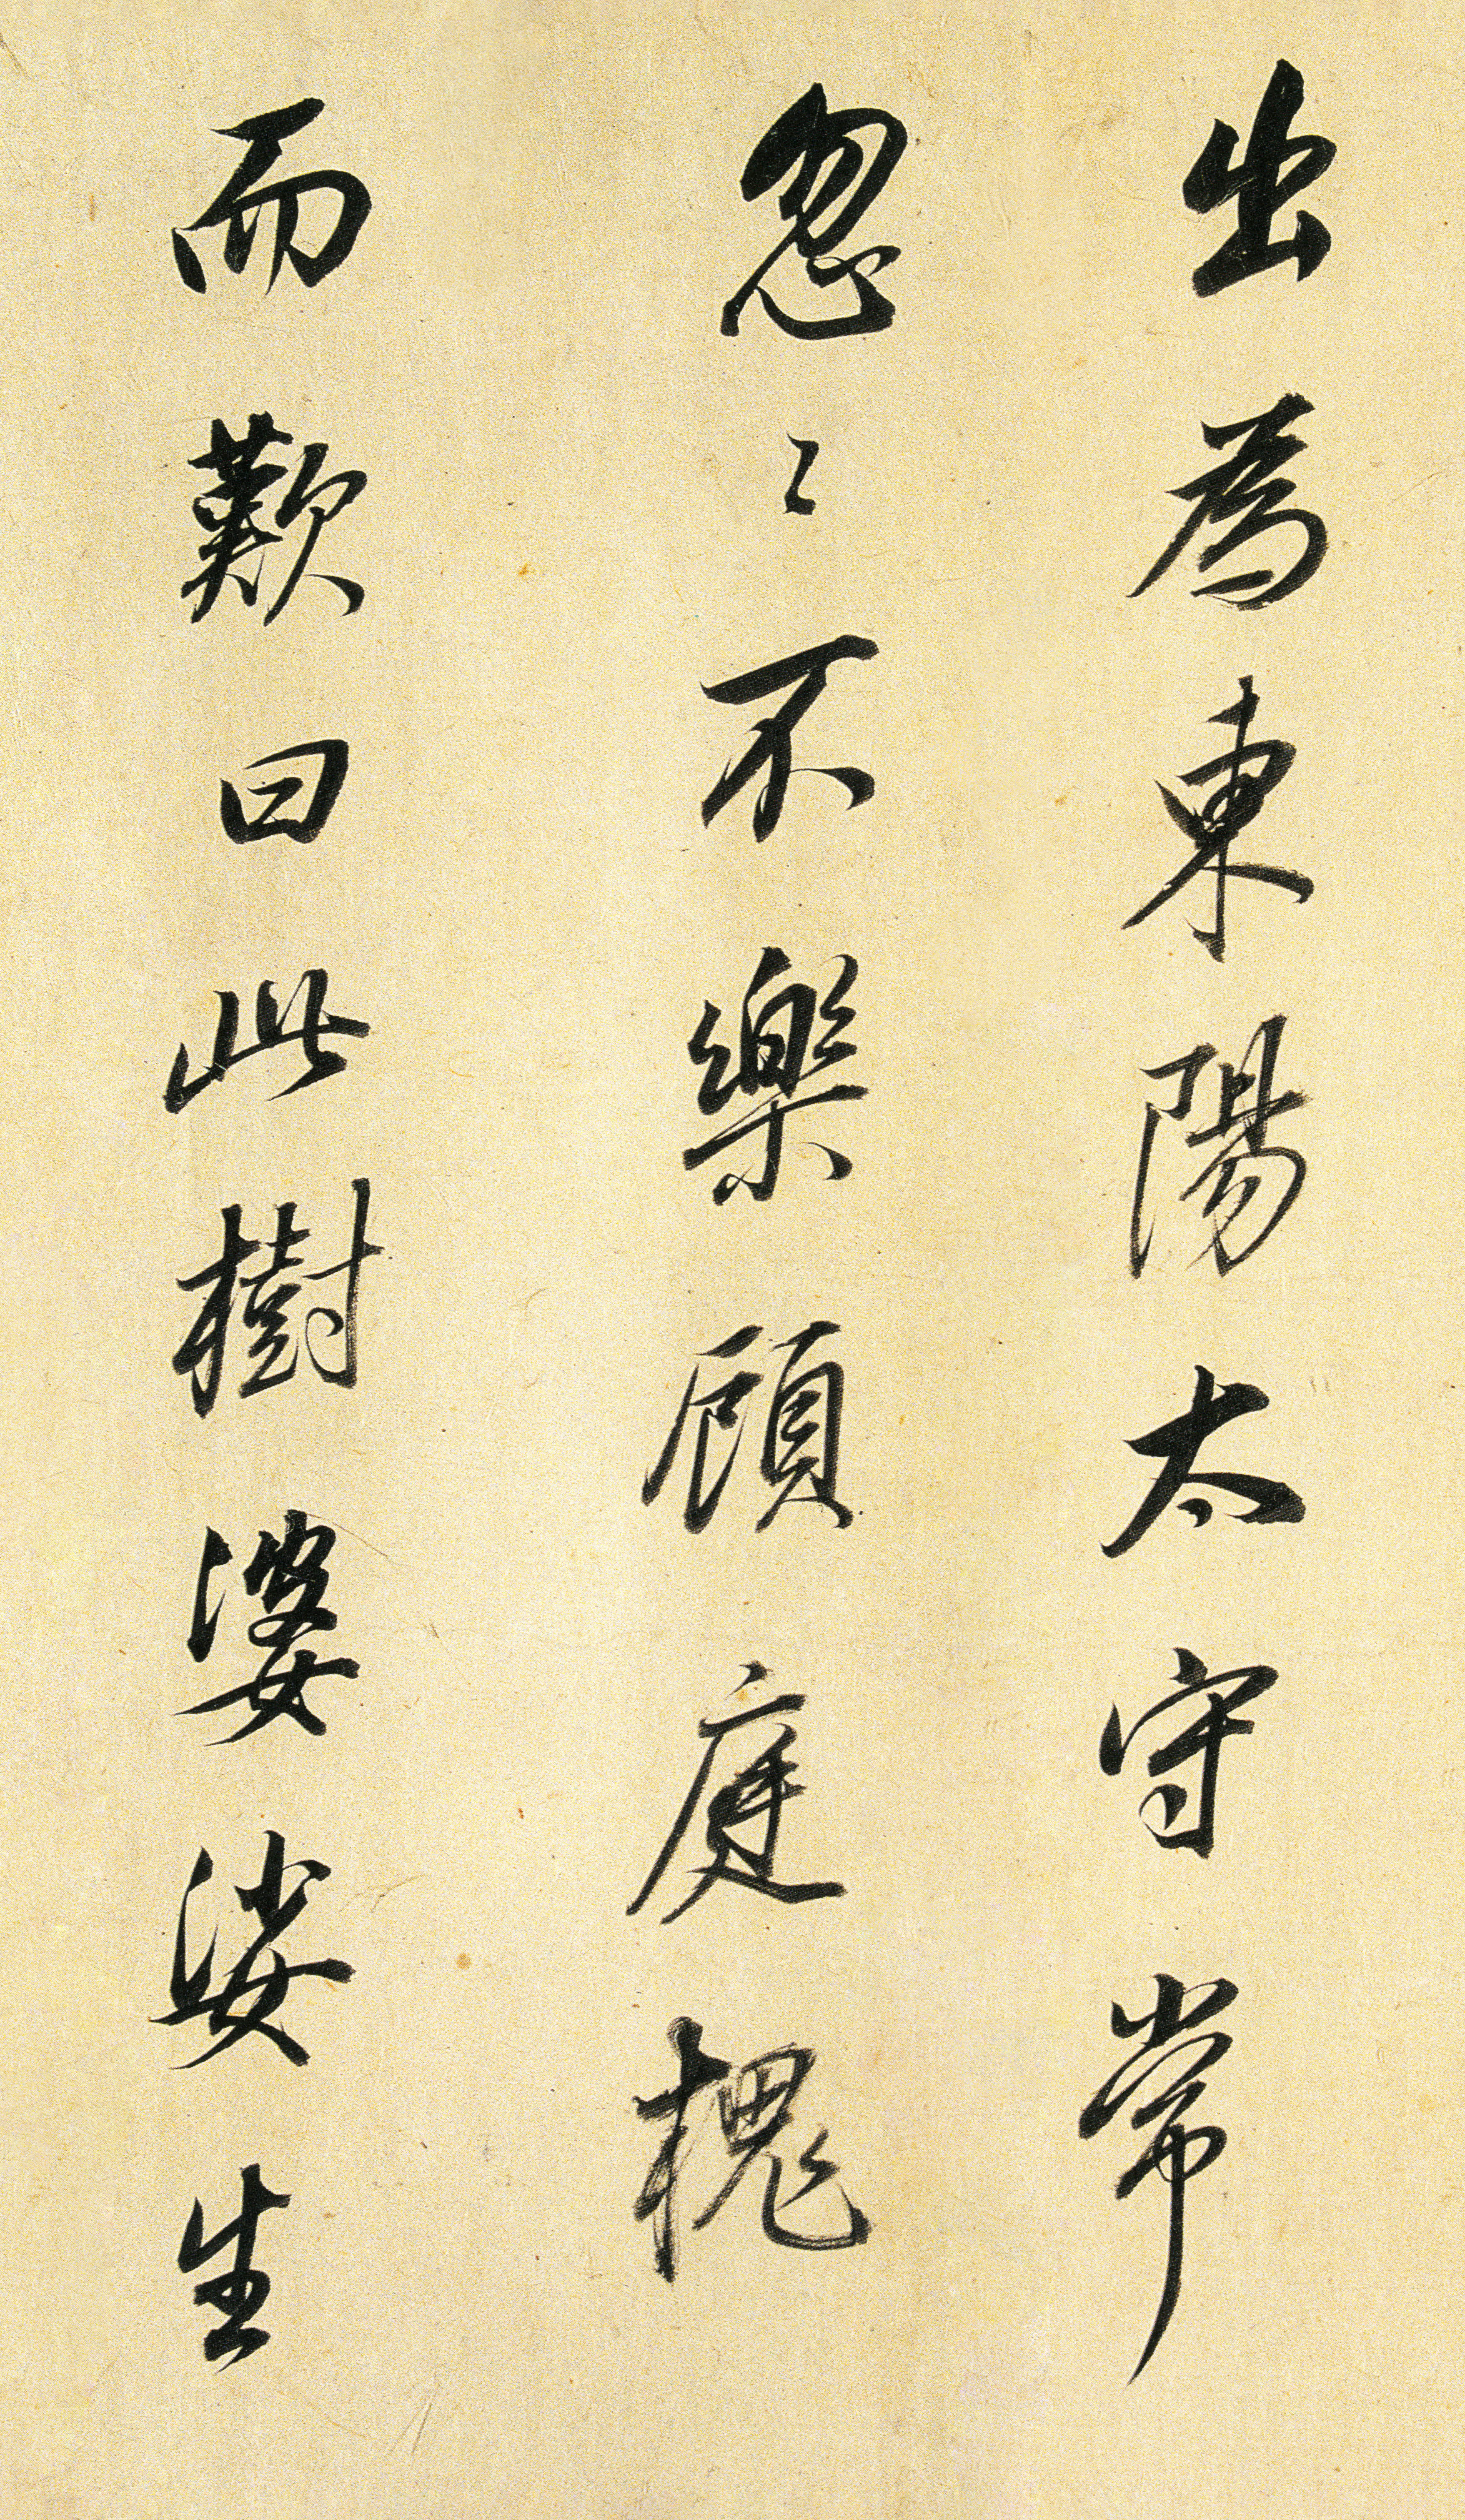 出為東陽太守常
忽〻不樂顧庭槐
而歎曰此樹婆娑生